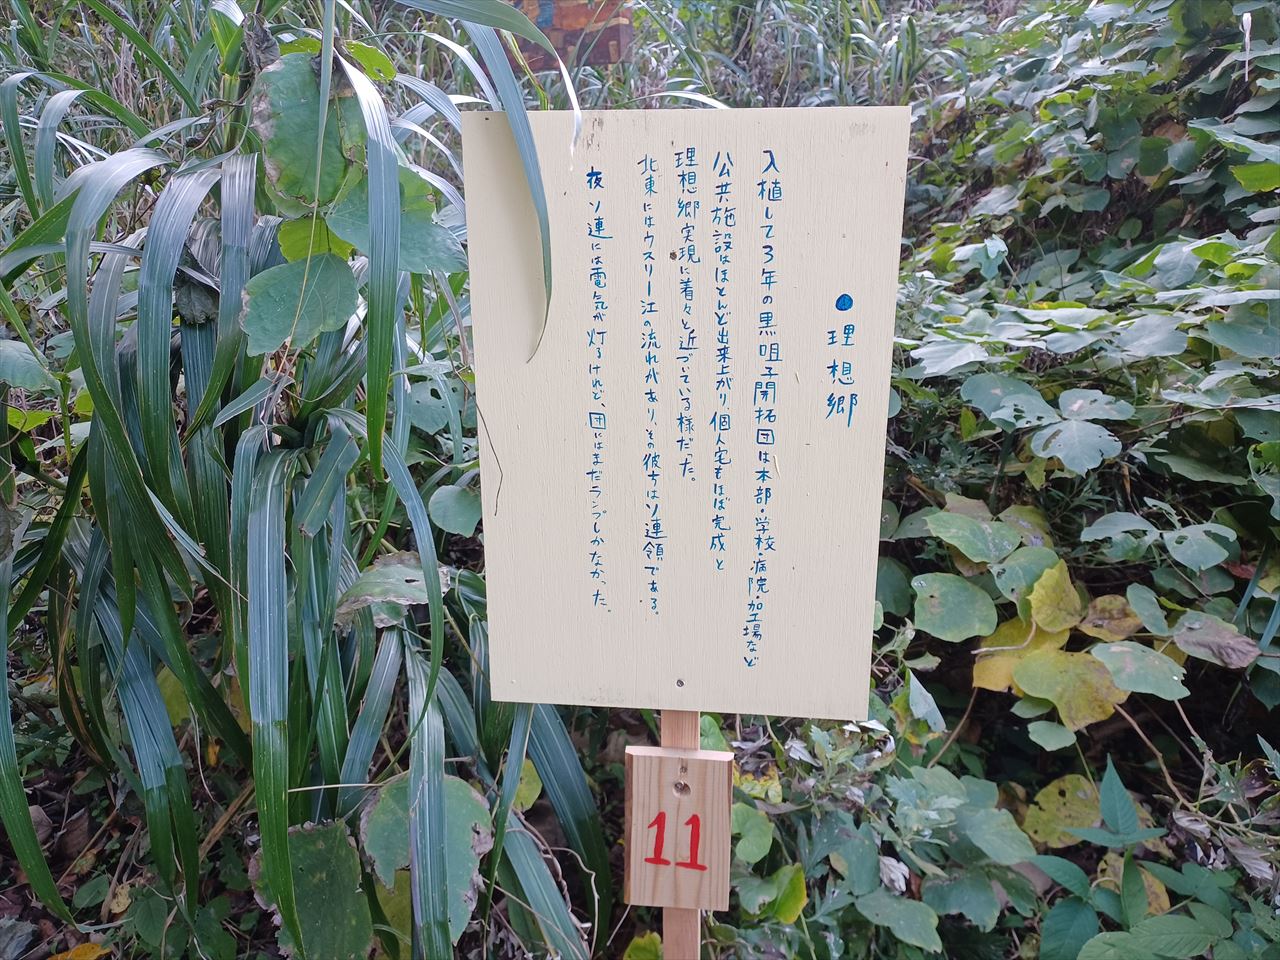 ●理想郷
入植して3年の黒咀子開拓団は本部・学校・病院・加工場など
公共施設はほとんど出来上がり、個人宅もほぼ完成と
理想郷実現に着々と近づいている様だった。
北東にはウスリー江の流れがあり、その彼方はソ連領である。
夜ソ連には電気が灯るけれど、団にはまだランプしかなかった。
11